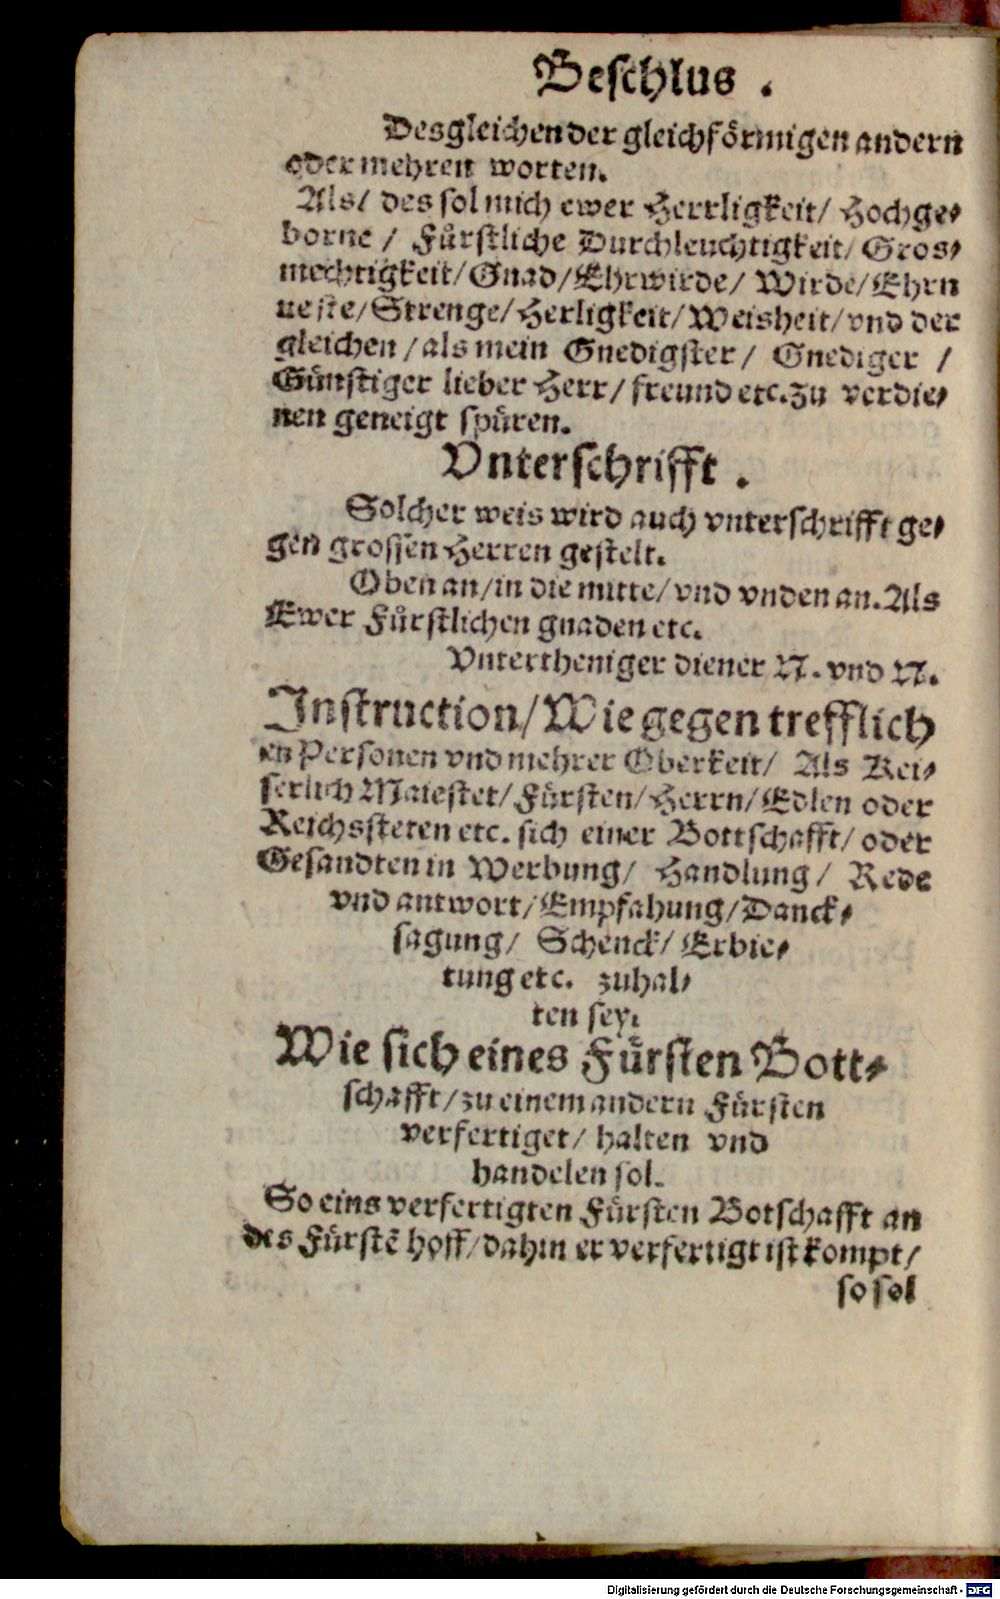 Beschlus .
Desgleichen der gleichförmigen andern
oder mehren worten.
Als/ des sol mich ewer Herrligkeit/ Hochge⸗
borne / Fürstliche Durchleuchtigkeit/ Gros⸗
mechtigkeit/ Gnad/ Ehrwirde/ Wirde/ Ehrn
ueste/ Strenge/ Herligkeit/ Weisheit/ vnd der
gleichen / als mein Gnedigster/ Gnediger /
Günstiger lieber Herr/ freund etc. zu verdie⸗
nen geneigt spüren.
Vnterschrifft .
Solcher weis wird auch vnterschrifft ge⸗
gen grossen Herren gestelt.
Oben an/ in die mitte/ vnd vnden an. Als
Ewer Fürstlichen gnaden etc.
Vntertheniger diener N. vnd N.
Instruction/ Wie gegen trefflich
en Personen vnd mehrer Oberkeit/ Als Kei⸗
serlich Maiestet/ Fürsten/ Herrn/ Edlen oder
Reichssteten etc. sich einer Bottschafft/ oder
Gesandten in Werbung/ Handlung/ Rede
vnd antwort/ Empfahung/ Danck⸗
sagung/ Schenck/ Erbie⸗
tung etc. zuhal⸗
ten sey.
Wie sich eines Fürsten Bott⸗
schafft/ zu einem andern Fürsten
verfertiget/ halten vnd
handelen sol.
So eins verfertigten Fürsten Botschafft an
des Fürstē hoff/ dahin er verfertigt ist kompt/
so sol
Digitalisierung gefördert durch die Deutsche Forschungsgemeinschaft - DFG